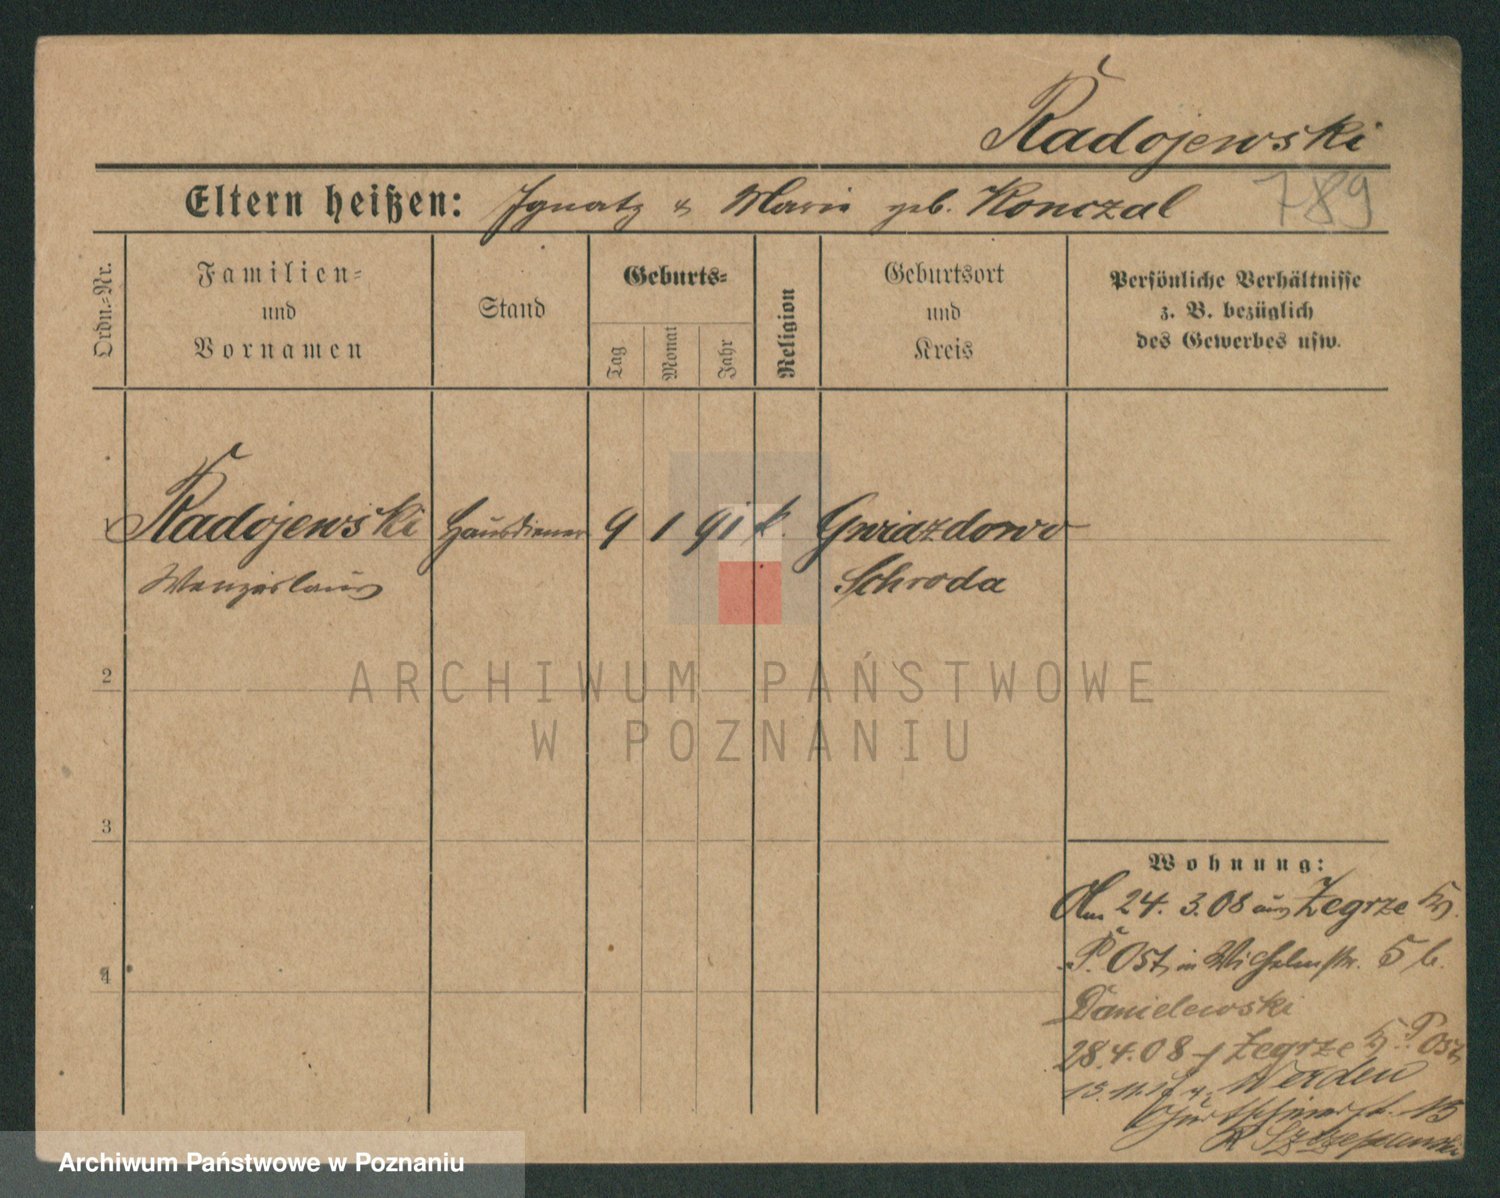 Radojewski
Eltern heißen: Ignatz & Marie geb. Konczal 789
Ordn.-Nr.
Familien-
und
Vornamen
Stand
Geburts-
Tag
Monat
Jahr
Religion
Geburtsort
und
Kreis
Persönliche Verhältnisse
z. B. bezüglich
des Gewerbes usw.
1 Radojewski Hausdiener 9 1 91 k. Gwiazdowo
Wenzeslaus Schroda
ARCHIWUM PAŃSTWOWE
2
W POZNANIU
3
Wohnung:
Am 24. 3. 08 aus Zegrze Kr.
P. Ost in Wilhelmstr. 5 b.
4
Danielewski
28.4.08 Zegrze Kr. P. Ost
Werden
15
Archiwum Państwowe w Poznaniu